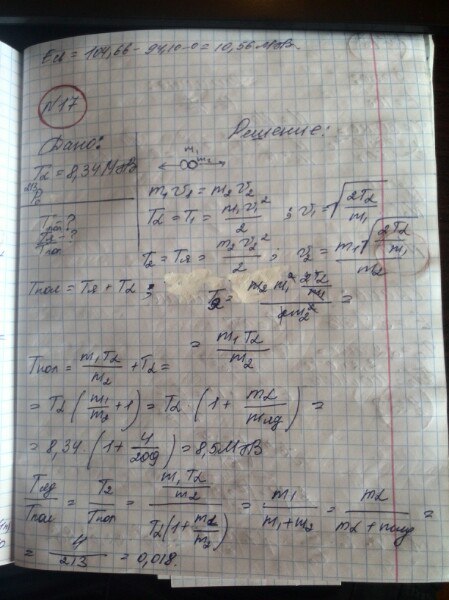 Eα = 104,66 - 94,10 - 0 = 10,56 МэВ.
№17
Дано:
Решение:
Tα = 8,34 МэВ
213Po
m₁ m₂
m₁v₁ = m₂v₂
Tпол - ?
Tя/Tпол - ?
Tα = T₁ = m₁v₁²/2 ; v₁ = √(2Tα/m₁)
T₂ = Tя = m₂v₂²/2 ; v₂ = m₁√(2Tα/m₁)/m₂
Tпол = Tя + Tα ; T₂ = m₂m₁² 2Tα/m₁ / 2m₂² =
= m₁Tα/m₂
Tпол = m₁Tα/m₂ + Tα =
= Tα (m₁/m₂ + 1) = Tα · (1 + mα/mяд) =
= 8,34 (1 + 4/209) = 8,5 МэВ
Tяд/Tпол = T₂/Tпол = (m₁Tα/m₂)/(Tα(1 + mα/m₂)) = m₁/(m₁+m₂) = mα/(mα + mяд) =
= 4/213 = 0,018.